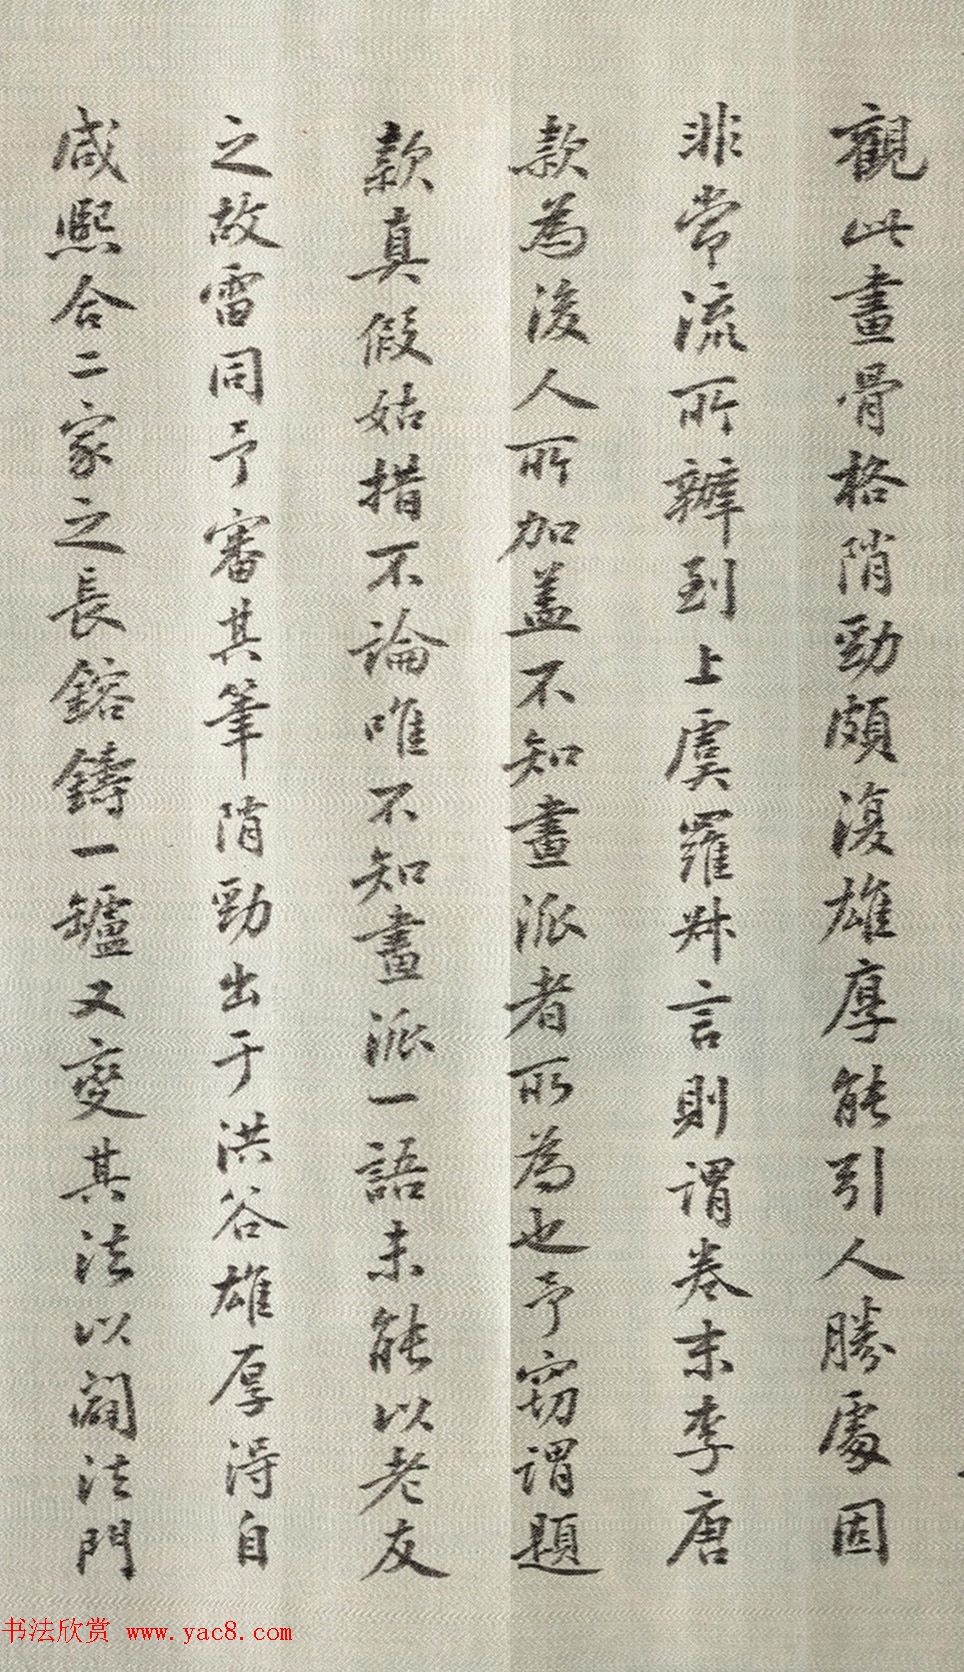 觀此畫骨格陗勁頗復雄厚能引人勝處固
非常流所辦到上虞羅叔言則謂卷末李唐
款為後人所加盖不知畫派者所為也予竊謂題
款真假姑措不論唯不知畫派一語未能以老友
之故雷同予審其筆陗勁出于洪谷雄厚得自
咸熙合二家之長鎔鑄一罏又變其法以闢法門
书法欣赏 www.yac8.com